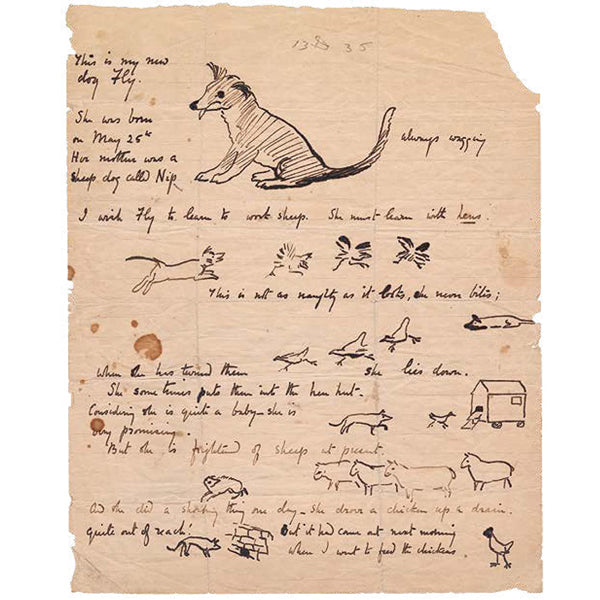 13 35
This is my new
dog Fly.
She was born
on May 25th
Her mother was a
sheep dog called Nip.
always wagging
I wish Fly to learn to work sheep. She must learn with hens.
This is not as naughty as it looks, she never bites;
when she has turned them she lies down.
She sometimes puts them into the hen hut.
Considering she is quite a baby - she is
very promising.
But she is frightened of sheep at present.
And she did a shocking thing one day - she drove a chicken up a drain.
quite out of reach! But it had come out next morning
when I went to feed the chickens.